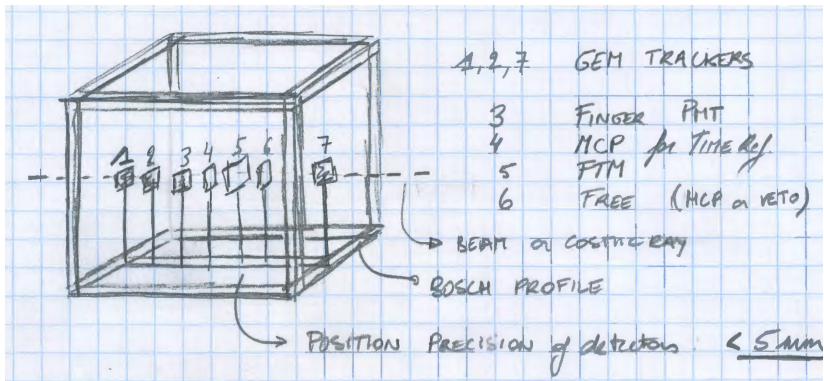 1,2,7 GEM TRACKERS
3 FINGER PMT
4 MCP for TIME Ref.
5 FTM
6 FREE (MCP or VETO)
1 2 3 4 5 6 7
BEAM or COSMIC RAY
BOSCH PROFILE
POSITION PRECISION of detectors < 5 mm